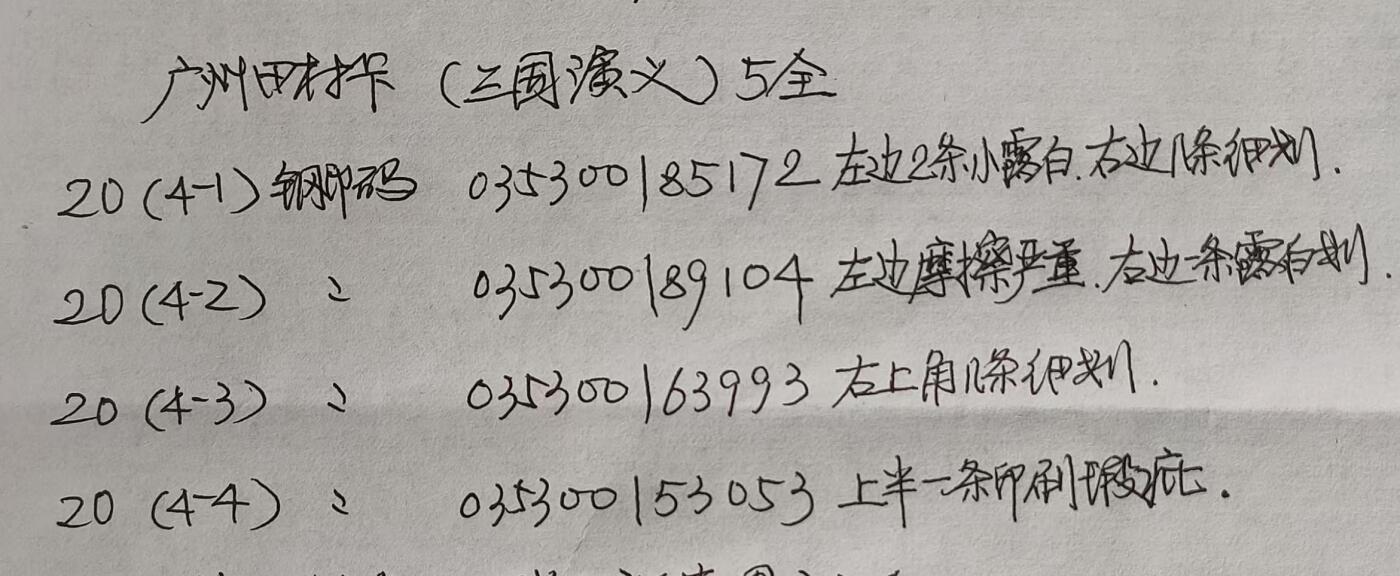 广州田村卡（三国演义）5全
20（4-1）钢印码 035300185172 左边2条小露白.右边1条细划.
20（4-2） 〃 035300189104 左边摩擦严重.右边一条露白划.
20（4-3） 〃 035300163993 右上角1条细划.
20（4-4） 〃 035300153053 上半一条印刷瑕疵.